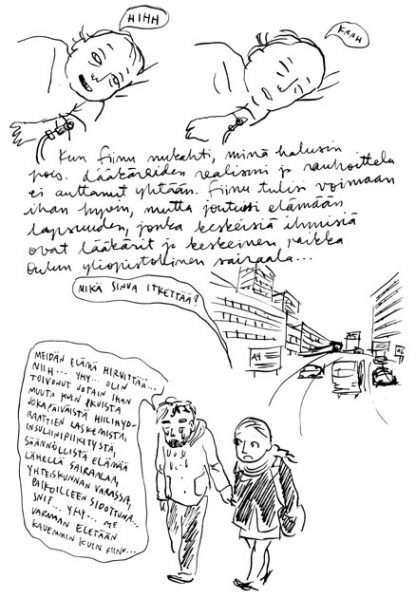 HIHH
KRRH
Kun Fiinu nukahti, minä halusin
pois. Lääkäreiden realismi ja rauhoittelu
ei auttanut yhtään. Fiinu tulisi voimaan
ihan hyvin, mutta joutuisi elämään
lapsuuden, jonka keskeisiä ihmisiä
ovat lääkärit ja keskeinen paikka
Oulun yliopistollinen sairaala...
MIKÄ SINUA ITKETTÄÄ?
MEIDÄN ELÄMÄ HIRVITTÄÄ...
NIIH... YHY... OLIN
TOIVONUT JOTAIN IHAN
MUUTA KUIN IKUISTA
JOKAPÄIVÄISTÄ HIILIHYD-
RAATTIEN LASKEMISTA,
INSULIINIPIIKITYSTÄ,
SÄÄNNÖLLISTÄ ELÄMÄÄ
LÄHELLÄ SAIRAALAA,
YHTEISKUNNAN VARASSA,
PAIKOILLEEN SIDOTTUNA...
SNIF... YHY... ME
VARMAAN ELETÄÄN
KAUEMMIN KUIN FIINU...